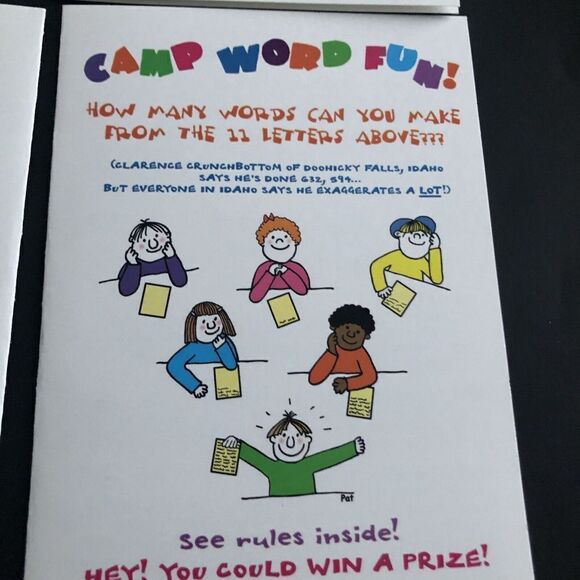 CAMP WORD FUN!
HOW MANY WORDS CAN YOU MAKE
FROM THE 11 LETTERS ABOVE???
(CLARENCE CRUNCHBOTTOM OF DOOHICKY FALLS, IDAHO
SAYS HE'S DONE 632, 594...
BUT EVERYONE IN IDAHO SAYS HE EXAGGERATES A LOT!)
Pat
See rules inside!
HEY! YOU COULD WIN A PRIZE!